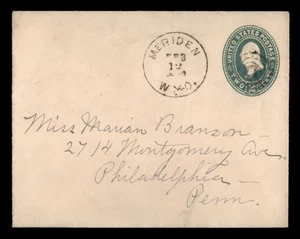 MERIDEN
FEB
12
WYO.
UNITED STATES POSTAGE
TWO
Miss Marian Branson
2714 Montgomery Ave.
Philadelphia
Penn.